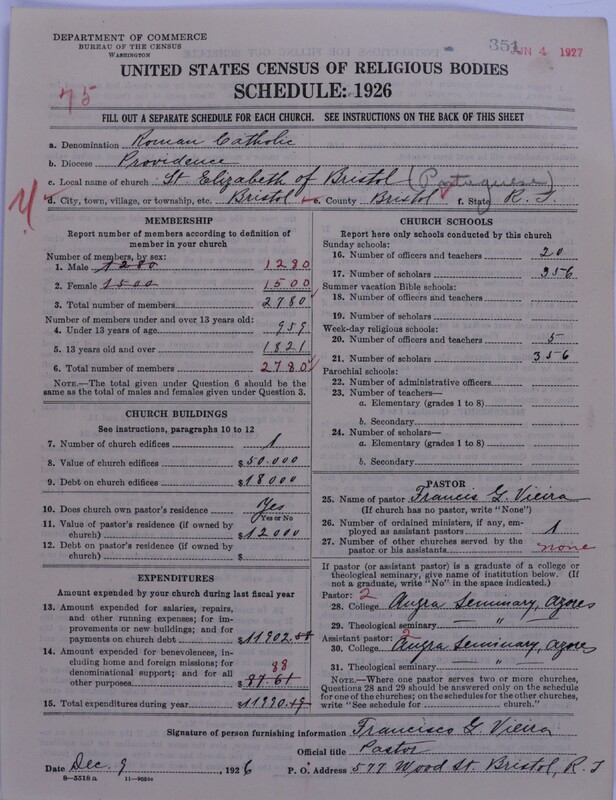 DEPARTMENT OF COMMERCE
BUREAU OF THE CENSUS
WASHINGTON
351 JUN 4 1927
UNITED STATES CENSUS OF RELIGIOUS BODIES
SCHEDULE: 1926
75
FILL OUT A SEPARATE SCHEDULE FOR EACH CHURCH. SEE INSTRUCTIONS ON THE BACK OF THIS SHEET
a. Denomination Roman Catholic
b. Diocese Providence
c. Local name of church St Elizabeth of Bristol (Portuguese)
d. City, town, village, or township, etc. Bristol e. County Bristol f. State R. I.
MEMBERSHIP
Report number of members according to definition of
member in your church
Number of members, by sex:
1. Male 1280 1280
2. Female 1500 1500
3. Total number of members 2780
Number of members under and over 13 years old:
4. Under 13 years of age 959
5. 13 years old and over 1821
6. Total number of members 2780
NOTE.—The total given under Question 6 should be
same as the total of males and females given under Question 3.
CHURCH BUILDINGS
See instructions, paragraphs 10 to 12
7. Number of church edifices 1
8. Value of church edifices $50.000
9. Debt on church edifices $18000
10. Does church own pastor's residence Yes
Yes or No
11. Value of pastor's residence (if owned by
church) $12000
12. Debt on pastor's residence (if owned by
church) $
EXPENDITURES
Amount expended by your church during last fiscal year
13. Amount expended for salaries, repairs,
and other running expenses; for im-
provements or new buildings; and for
payments on church debt $11902.58
14. Amount expended for benevolences, in-
cluding home and foreign missions; for
denominational support; and for all
other purposes 88 $87.61
15. Total expenditures during year $11990.19
CHURCH SCHOOLS
Report here only schools conducted by this church
Sunday schools:
16. Number of officers and teachers 20
17. Number of scholars 356
Summer vacation Bible schools:
18. Number of officers and teachers
19. Number of scholars
Week-day religious schools:
20. Number of officers and teachers 5
21. Number of scholars 356
Parochial schools:
22. Number of administrative officers
23. Number of teachers—
a. Elementary (grades 1 to 8)
b. Secondary
24. Number of scholars—
a. Elementary (grades 1 to 8)
b. Secondary
PASTOR
25. Name of pastor Francis G. Vieira
(If church has no pastor, write "None")
26. Number of ordained ministers, if any, em-
ployed as assistant pastors 1
27. Number of other churches served by the
pastor or his assistants none
If pastor (or assistant pastor) is a graduate of a college or
theological seminary, give name of institution below. (If
not a graduate, write "No" in the space indicated.)
Pastor: 2
28. College Angra Seminary, Azores
29. Theological seminary " "
Assistant pastor: 2
30. College Angra Seminary, Azores
31. Theological seminary " "
NOTE.—Where one pastor serves two or more churches,
Questions 28 and 29 should be answered only on the schedule
for one of the churches; on the schedules for the other churches,
write "See schedule for church."
Signature of person furnishing information Francisco G. Vieira
Official title Pastor
Date Dec. 9, 1926 P. O. Address 577 Wood St. Bristol, R. I
8—5518a